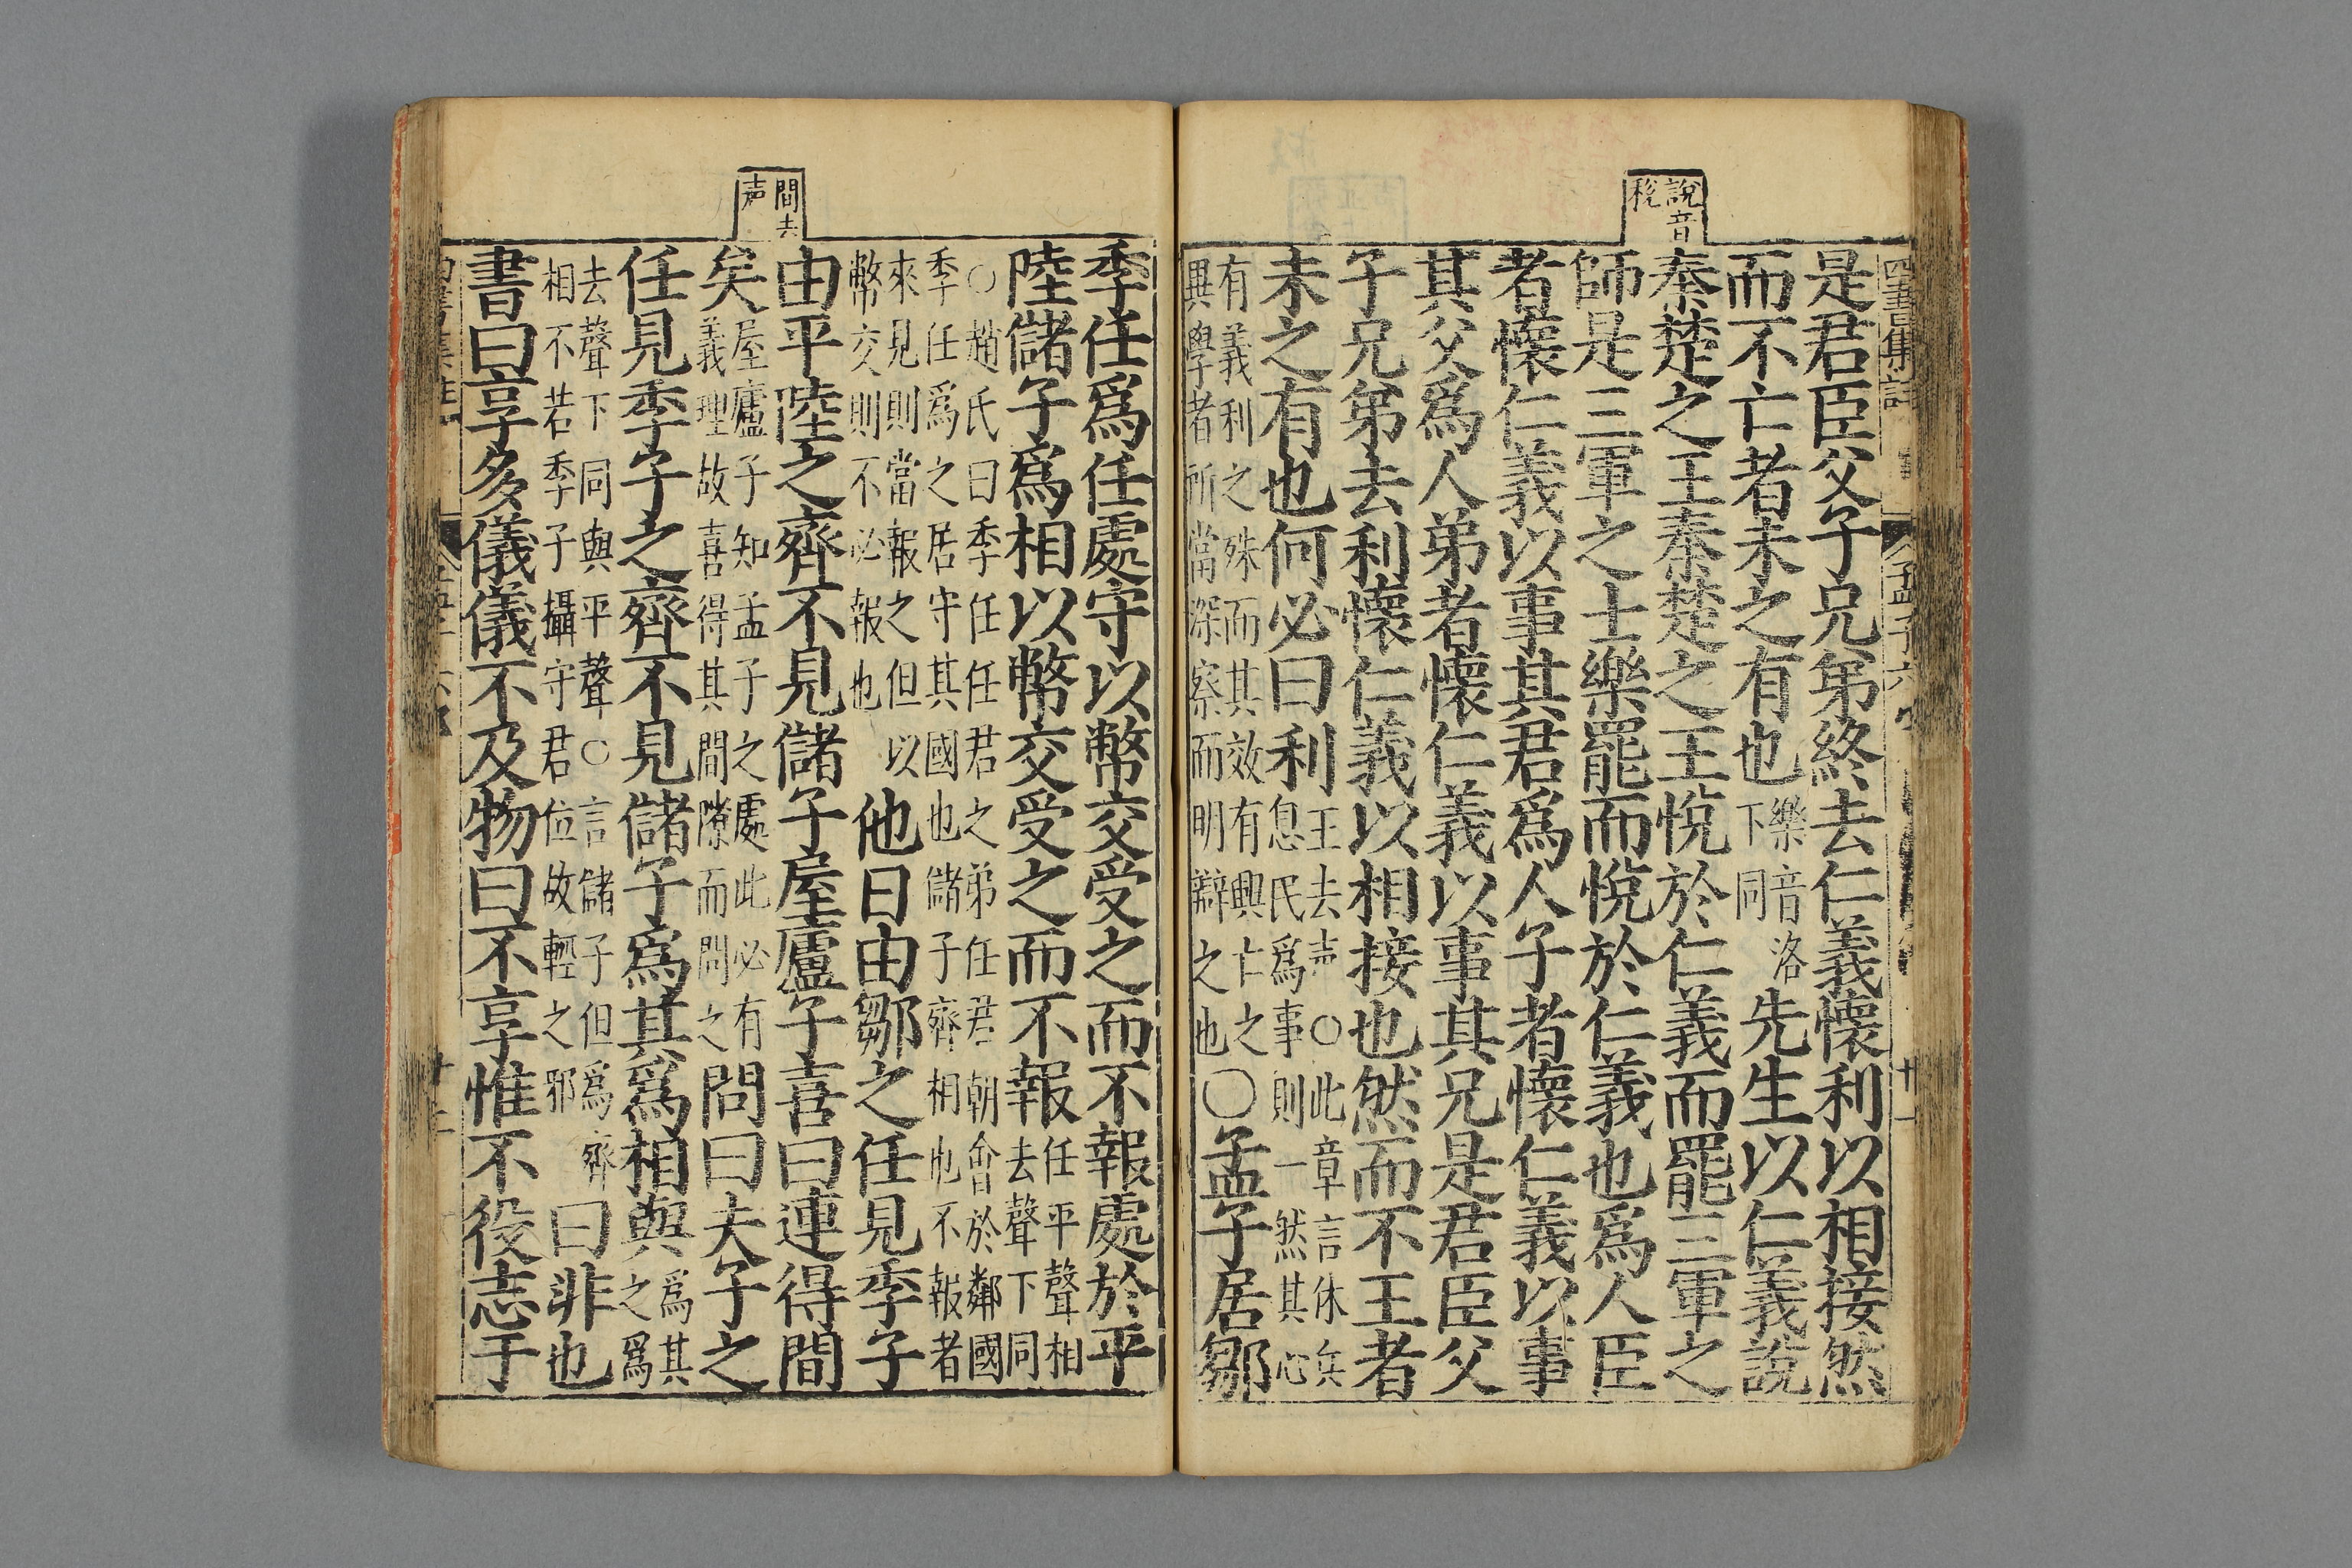 說音
稅
四書集註
孟子六
十一
是君臣父子兄弟終去仁義懷利以相接然
而不亡者未之有也樂音洛下同先生以仁義說
秦楚之王秦楚之王悅於仁義而罷三軍之
師是三軍之士樂罷而悅於仁義也爲人臣
者懷仁義以事其君爲人子者懷仁義以事
其父爲人弟者懷仁義以事其兄是君臣父
子兄弟去利懷仁義以相接也然而不王者
未之有也何必曰利王去声○此章言休兵息民爲事則一然其心
有義利之殊而其效有興亡之異學者所當深察而明辯之也○孟子居鄒
間去
声
季任爲任處守以幣交受之而不報處於平
陸儲子爲相以幣交受之而不報任平聲相去聲下同
○趙氏曰季任任君之弟任君朝會於鄰國季任爲之居守其國也儲子齊相也不報者
來見則當報之但以幣交則不必報也他日由鄒之任見季子
由平陸之齊不見儲子屋廬子喜曰連得間
矣屋廬子知孟子之處此必有義理故喜得其間隙而問之問曰夫子之
任見季子之齊不見儲子爲其爲相與爲其之爲
去聲下同與平聲○言儲子但爲齊相不若季子攝守君位故輕之邪曰非也
書曰享多儀儀不及物曰不享惟不役志于